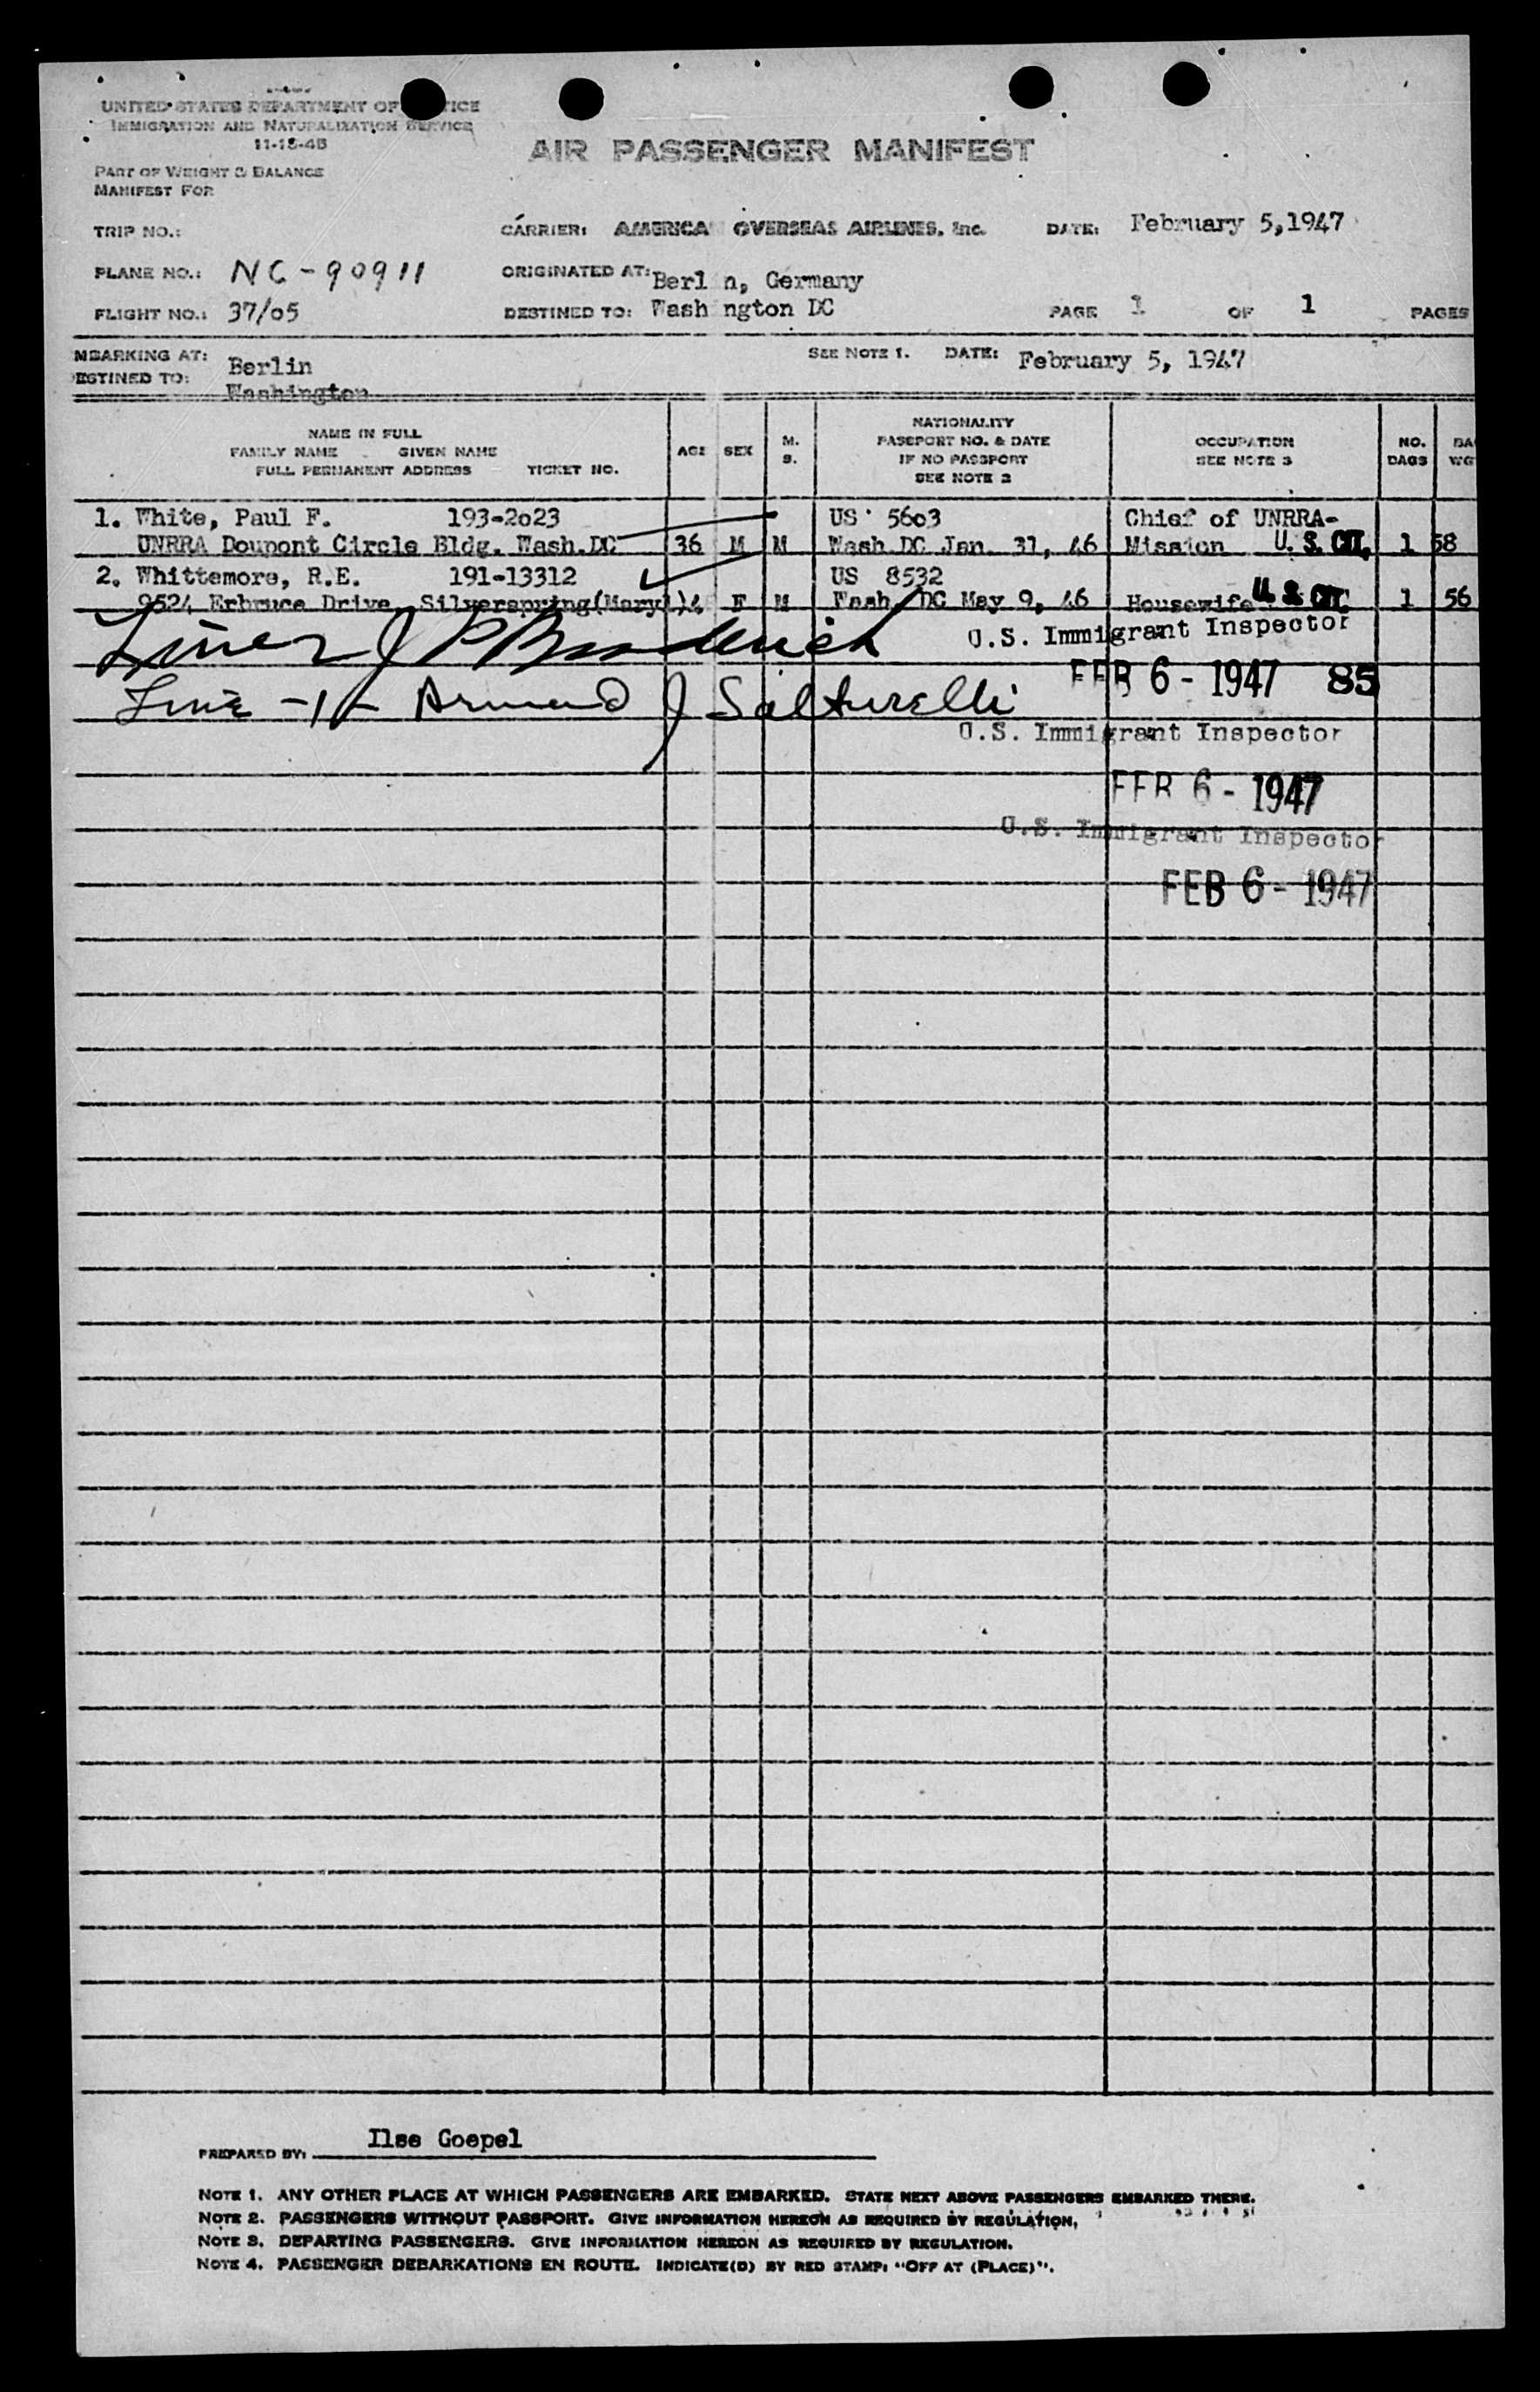 UNITED STATES DEPARTMENT OF JUSTICE
IMMIGRATION AND NATURALIZATION SERVICE
11-15-45
AIR PASSENGER MANIFEST
PART OF WEIGHT & BALANCE
MANIFEST FOR
TRIP NO.: CARRIER: AMERICA OVERSEAS AIRLINES, Inc. DATE: February 5,1947
PLANE NO.: NC-90911 ORIGINATED AT: Berl n, Germany
FLIGHT NO.: 37/05 DESTINED TO: Wash ngton DC PAGE 1 OF 1 PAGES
MBARKING AT: Berlin SEE NOTE 1. DATE: February 5, 1947
ESTINED TO: Washington
NAME IN FULL
FAMILY NAME GIVEN NAME
FULL PERMANENT ADDRESS TICKET NO.
AGE SEX M. S.
NATIONALITY
PASSPORT NO. & DATE
IF NO PASSPORT
SEE NOTE 2
OCCUPATION
SEE NOTE 3
NO. BAGS
BA WG
1. White, Paul F. 193-2023 US 5603 Chief of UNRRA-
UNRRA Doupont Circle Bldg. Wash.DC 36 M M Wash.DC Jan. 31, 46 Mission U. S. CIT. 1 58
2. Whittemore, R.E. 191-13312 US 8532
9524 Erbruce Drive, Silverspring(Maryl) F M Wash. DC May 9, 46 Housewife U. S. CIT. 1 56
Line 2 J P Broderick U.S. Immigrant Inspector
FEB 6 - 1947 85
Line -1- Armand J Salturelli
U.S. Immigrant Inspector
FEB 6 - 1947
U.S. Immigrant Inspector
FEB 6 - 1947
PREPARED BY: Ilse Goepel
NOTE 1. ANY OTHER PLACE AT WHICH PASSENGERS ARE EMBARKED. STATE NEXT ABOVE PASSENGERS EMBARKED THERE.
NOTE 2. PASSENGERS WITHOUT PASSPORT. GIVE INFORMATION HEREON AS REQUIRED BY REGULATION.
NOTE 3. DEPARTING PASSENGERS. GIVE INFORMATION HEREON AS REQUIRED BY REGULATION.
NOTE 4. PASSENGER DEBARKATIONS EN ROUTE. INDICATE(D) BY RED STAMP: "OFF AT (PLACE)".